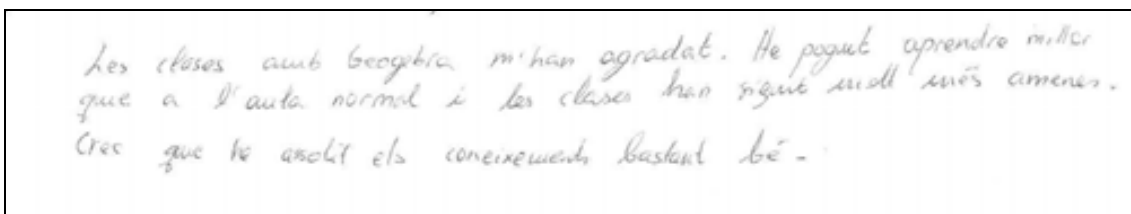 Les clases amb Geogebra m'han agradat. He pogut aprendre millor
que a l'aula normal i les clases han sigut molt més amenes.
Crec que he assolit els coneixements bastant bé.